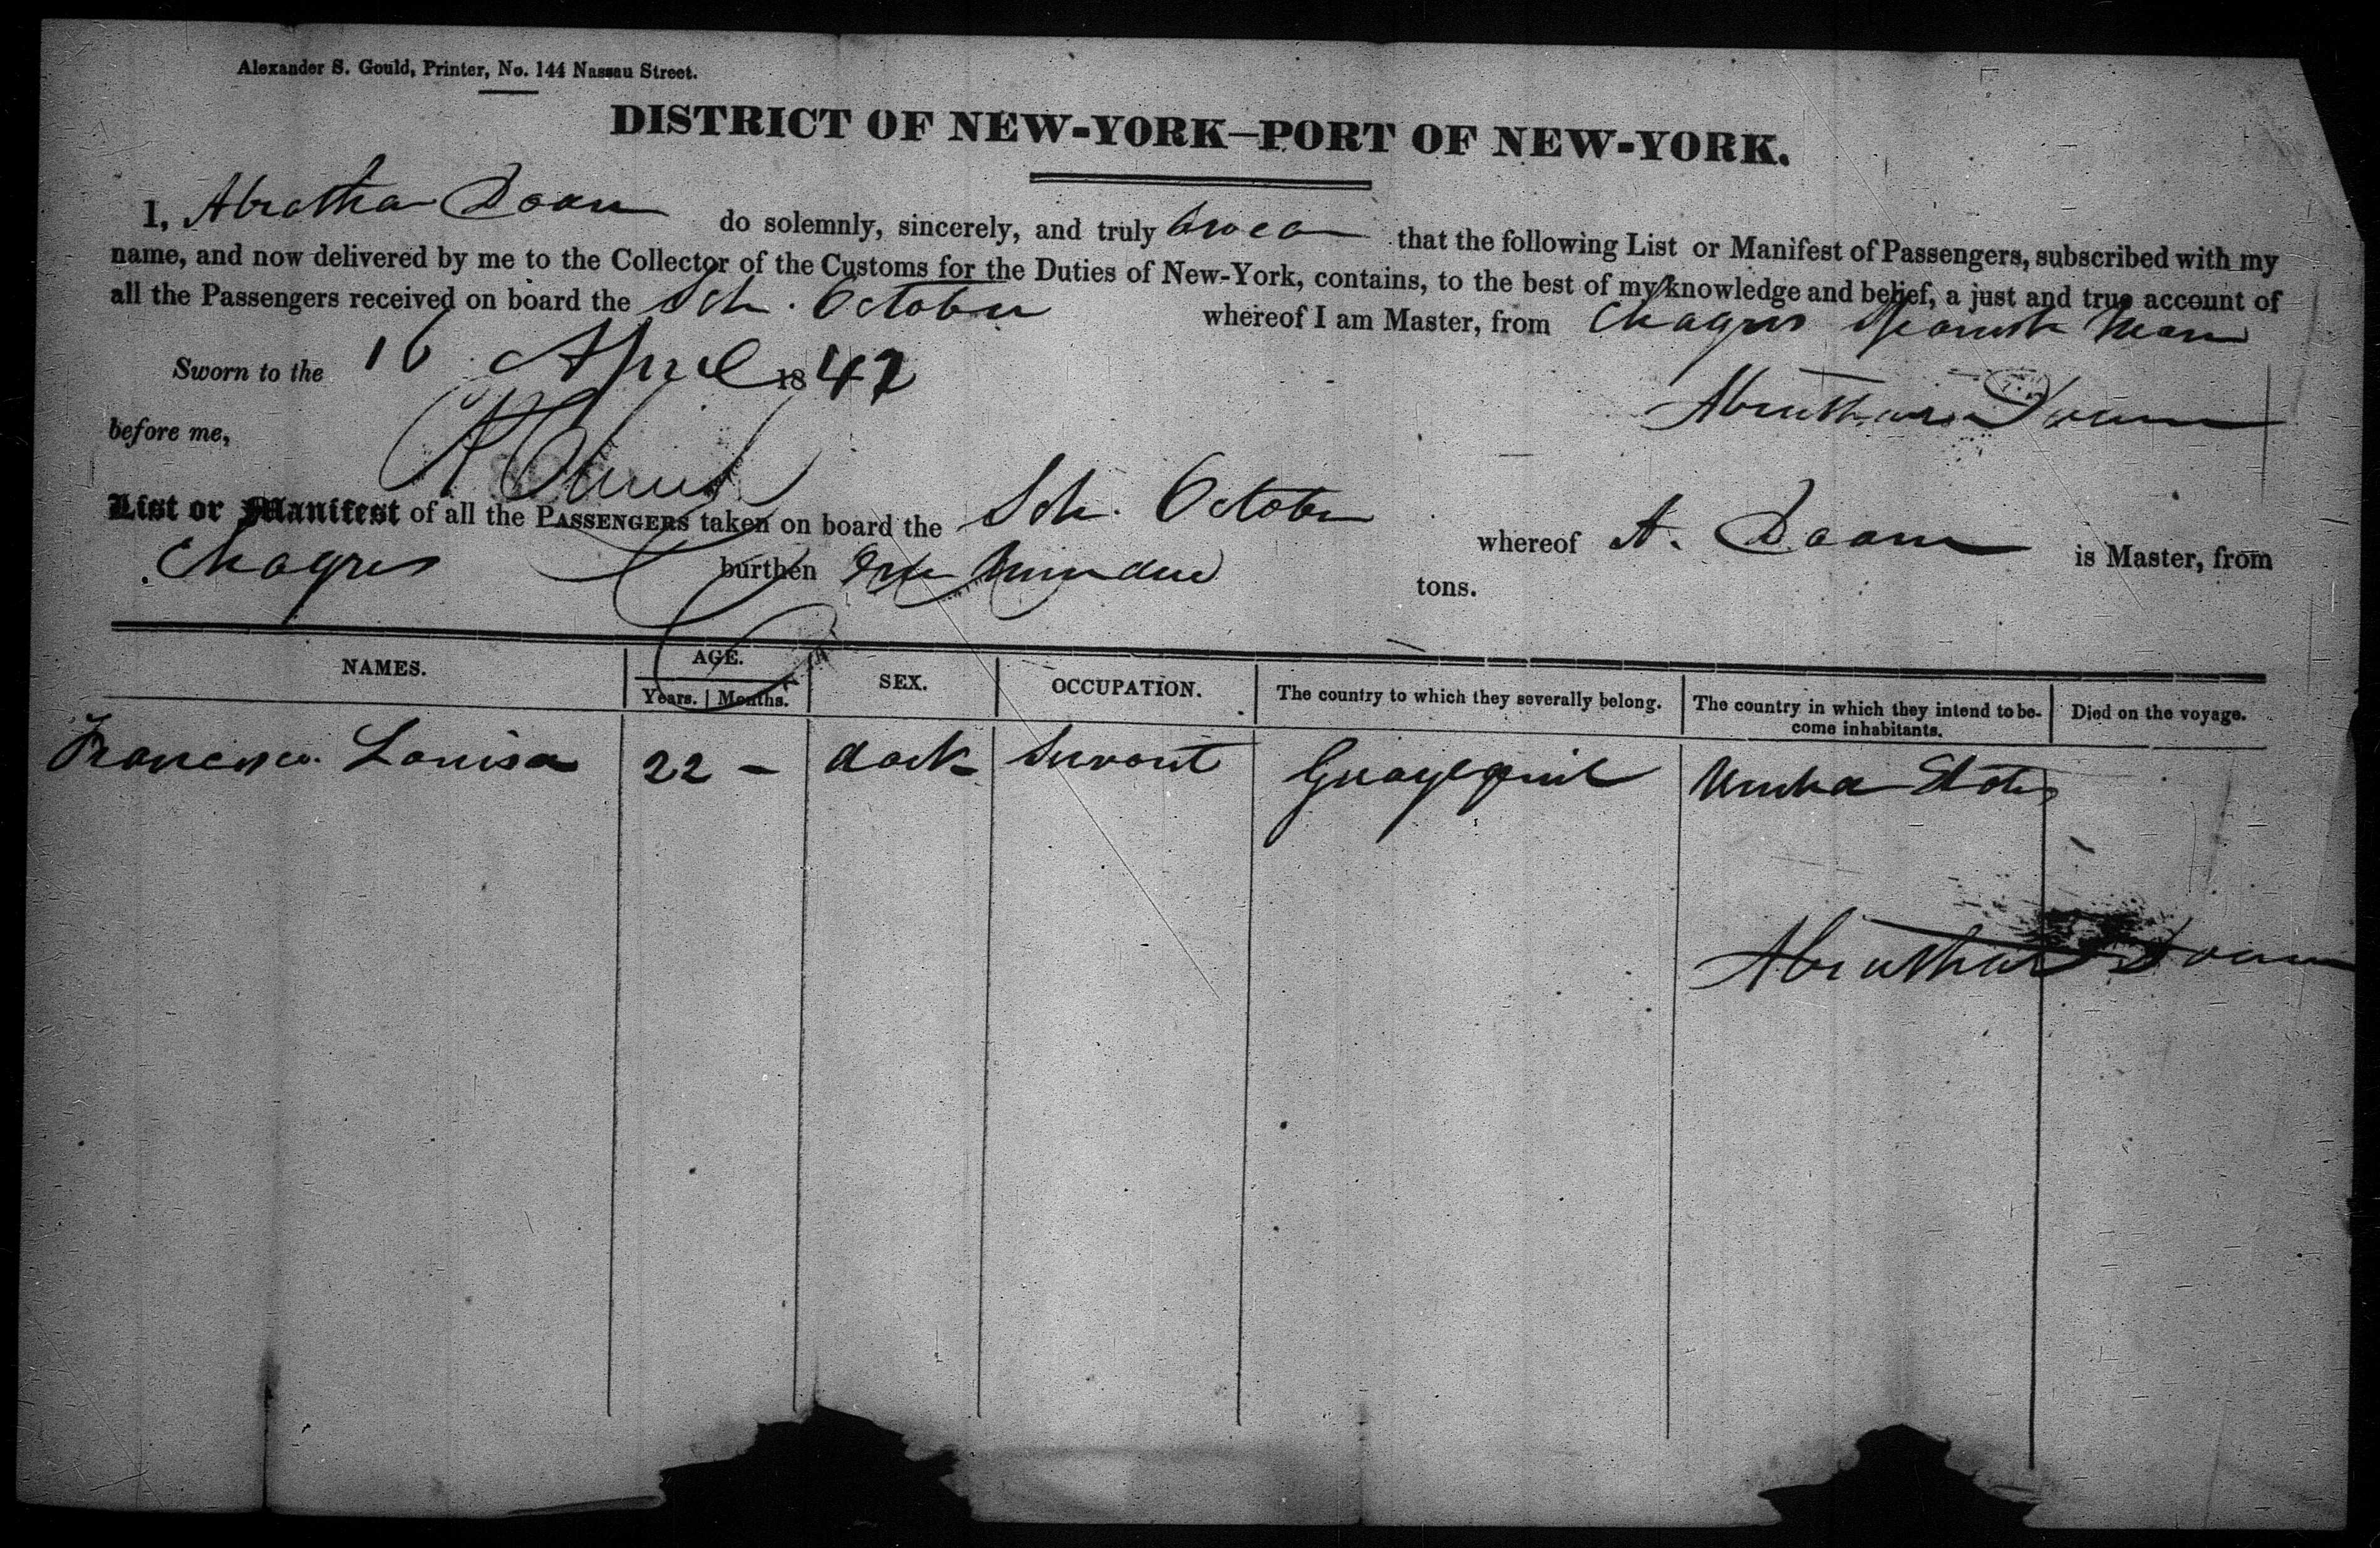 Alexander S. Gould, Printer, No. 144 Nassau Street.
DISTRICT OF NEW-YORK—PORT OF NEW-YORK.
I, Abratha Doan do solemnly, sincerely, and truly swear that the following List or Manifest of Passengers, subscribed with my
name, and now delivered by me to the Collector of the Customs for the Duties of New-York, contains, to the best of my knowledge and belief, a just and true account of
all the Passengers received on board the Sch. October whereof I am Master, from Chagres Spanish Main
Sworn to the 16 April 1847
Doane
before me,
List or Manifest of all the PASSENGERS taken on board the Sch. October whereof A. Doane is Master, from
Chagres burthen One Hundred tons.
NAMES. AGE. SEX. OCCUPATION. The country to which they severally belong. The country in which they intend to be-come inhabitants. Died on the voyage.
Years. | Months.
Francisco Louisa 22 - dark Servant Guayaquil United States
Doane